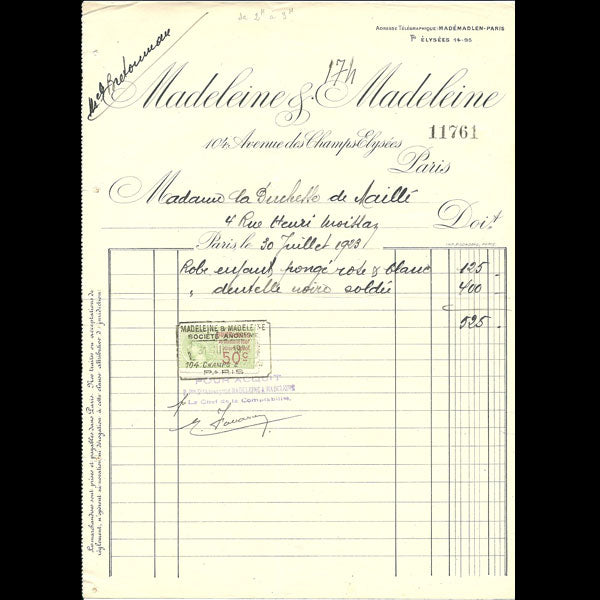 de 2ʰ à 3ʰ
ADRESSE TÉLÉGRAPHIQUE: MADÉMADLEN-PARIS
ÉLYSÉES 14-95
17h
Madeleine & Madeleine
104, Avenue des Champs Elysées
11761
Paris
Madame la Duchesse de Maillé
4 Rue Henri Moissan
Doit
Paris le 30 Juillet 1923
Robe enfant, pongé rose & blanc 125
" dentelle noire soldée 400
525
MADELEINE & MADELEINE
SOCIÉTÉ ANONYME
50c
104 CHAMPS E
PARIS
POUR ACQUIT
MADELEINE & MADELEINE
Le Chef de la Comptabilité,
Les marchandises sont prises et payables dans Paris. Nos traites ou acceptations de
règlement, n'opèrent ni novation ni dérogation à cette clause attributive de juridiction.